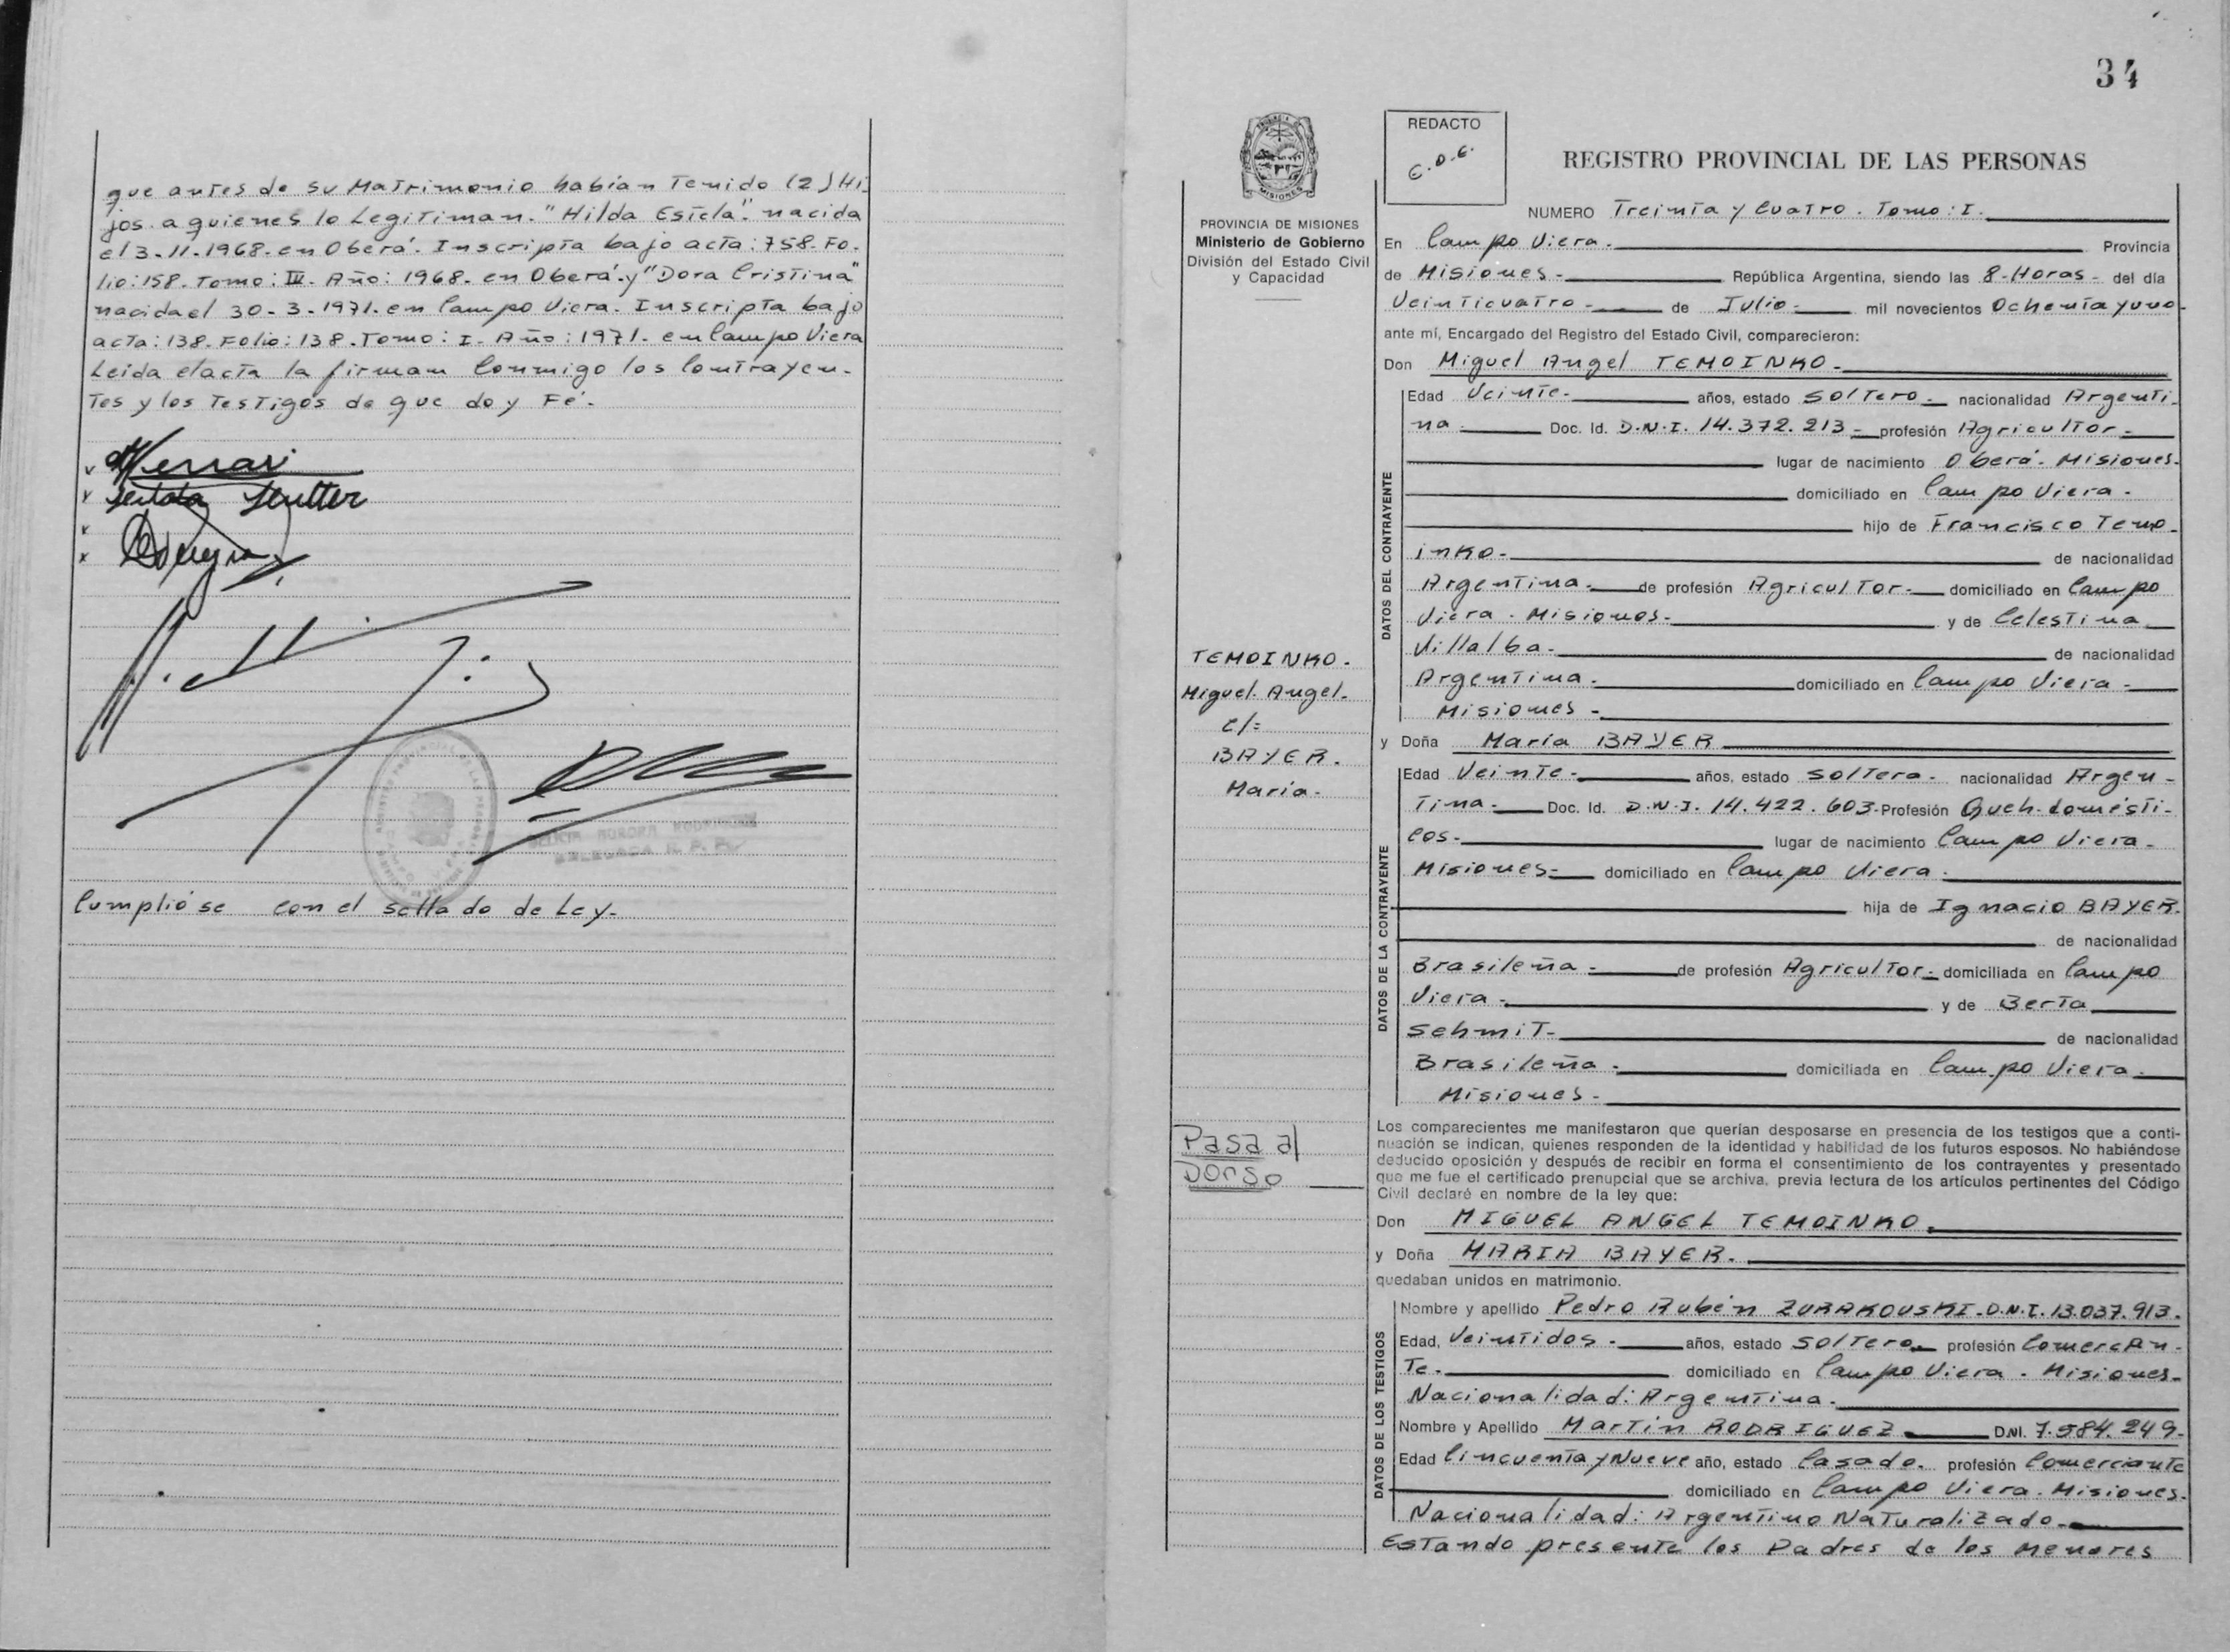 que antes de su Matrimonio habían Tenido (2) Hi-
jos. a quienes lo Legitiman. "Hilda Estela". nacida
el 3-11-1968. en Oberá. Inscripta bajo acta: 758. Fo.
lio: 158. Tomo: IV. Año: 1968. en Oberá. y "Dora Cristina"
nacida el 30-3-1971. en Campo Viera. Inscripta bajo
acta: 138. Folio: 138. Tomo: I. Año: 1971. en Campo Viera
Leida el acta la firman Conmigo los Contrayen-
Tes y los Testigos de que doy Fé.
Cumplióse con el sellado de Ley.
34
REDACTO
REGISTRO PROVINCIAL DE LAS PERSONAS
PROVINCIA DE MISIONES
Ministerio de Gobierno
División del Estado Civil
y Capacidad
NUMERO Treinta y Cuatro. Tomo: I.
En Campo Viera. Provincia
de Misiones - República Argentina, siendo las 8-Horas - del día
Veinticuatro - de Julio - mil novecientos Ochenta y uno -
ante mí, Encargado del Registro del Estado Civil, comparecieron:
Don Miguel Angel TEMOINKO -
DATOS DEL CONTRAYENTE
Edad Veinte - años, estado Soltero - nacionalidad Argenti-
na. Doc. Id. D.N.I. 14.372.213 - profesión Agricultor -
lugar de nacimiento Oberá. Misiones.
domiciliado en Campo Viera -
hijo de Francisco Temo-
inko - de nacionalidad
Argentina. de profesión Agricultor - domiciliado en Campo
Viera. Misiones - y de Celestina
Villalba - de nacionalidad
Argentina. domiciliado en Campo Viera -
Misiones -
TEMOINKO.
Miguel. Angel.
c/=
BAYER.
María.
y Doña María BAYER
DATOS DE LA CONTRAYENTE
Edad Veinte - años, estado Soltera - nacionalidad Argen-
Tina - Doc. Id. D.N.I. 14.422.603 - Profesión Queh. domésti-
cos - lugar de nacimiento Campo Viera -
Misiones - domiciliado en Campo Viera.
hija de Ignacio BAYER.
de nacionalidad
Brasileña - de profesión Agricultor - domiciliada en Campo
Viera - y de Berta
Schmit - de nacionalidad
Brasileña - domiciliada en Campo Viera -
Misiones -
Pasa al
Dorso
Los comparecientes me manifestaron que querían desposarse en presencia de los testigos que a conti-
nuación se indican, quienes responden de la identidad y habilidad de los futuros esposos. No habiéndose
deducido oposición y después de recibir en forma el consentimiento de los contrayentes y presentado
que me fue el certificado prenupcial que se archiva, previa lectura de los artículos pertinentes del Código
Civil declaré en nombre de la ley que:
Don MIGUEL ANGEL TEMOINKO.
y Doña MARIA BAYER.
quedaban unidos en matrimonio.
DATOS DE LOS TESTIGOS
Nombre y apellido Pedro Rubén ZURAKOUSKI - D.N.I. 13.037.913.
Edad, Veintidos - años, estado Soltero - profesión Comercian-
Te - domiciliado en Campo Viera. Misiones -
Nacionalidad: Argentina.
Nombre y Apellido Martín RODRIGUEZ D.NI. 7.584.249 -
Edad Cincuenta y Nueve año, estado Casado. profesión Comerciante
domiciliado en Campo Viera. Misiones -
Nacionalidad: Argentino Naturalizado -
Estando presente los Padres de los Menores